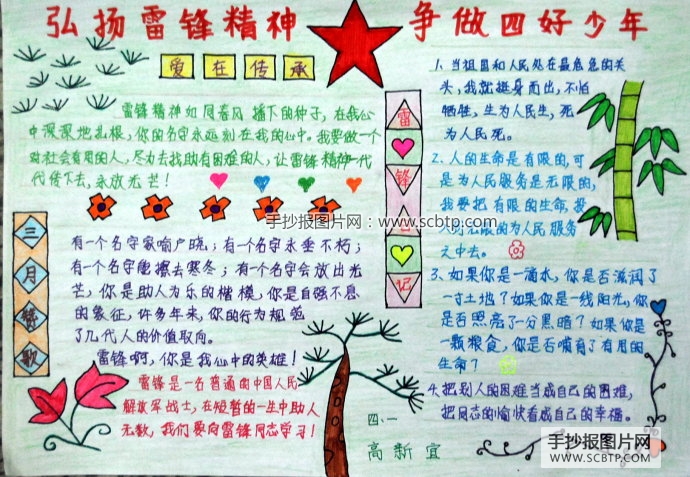 弘扬雷锋精神
争做四好少年
爱在传承
雷锋精神如同春风播下的种子，在我心
中深深地扎根，你的名字永远刻在我的心中。我要做一个
对社会有用的人，尽力去找助有困难的人，让雷锋精神一代
代传下去，永放光芒！
三月赞歌
有一个名字家喻户晓；有一个名字永垂不朽；
有一个名字能擦去寒冬；有一个名字会放出光
芒，你是助人为乐的楷模，你是自强不息
的象征，许多年来，你的行为规范
了几代人的价值取向。
雷锋啊，你是我心中的英雄！
雷锋是一名普通的中国人民
解放军战士，在短暂的一生中助人
无数，我们要向雷锋同志学习！
雷锋日记
1. 当祖国和人民处在最危急的关
头，我就挺身而出，不怕
牺牲，生为人民生，死
为人民死。
2. 人的生命是有限的，可
是为人民服务是无限的，
我要把有限的生命，投
入到无限的为人民服务
之中去。
3. 如果你是一滴水，你是否滋润了
一寸土地？如果你是一线阳光，你是
是否照亮了一分黑暗？如果你是
一颗粮食，你是否哺育了有用的
生命？
4. 把别人的困难当成自己的困难，
把同志的愉快看成自己的幸福。
四、一
高新宜
手抄报图片网：www.scbtp.com
手抄报图片网
WWW.SCBTP.COM